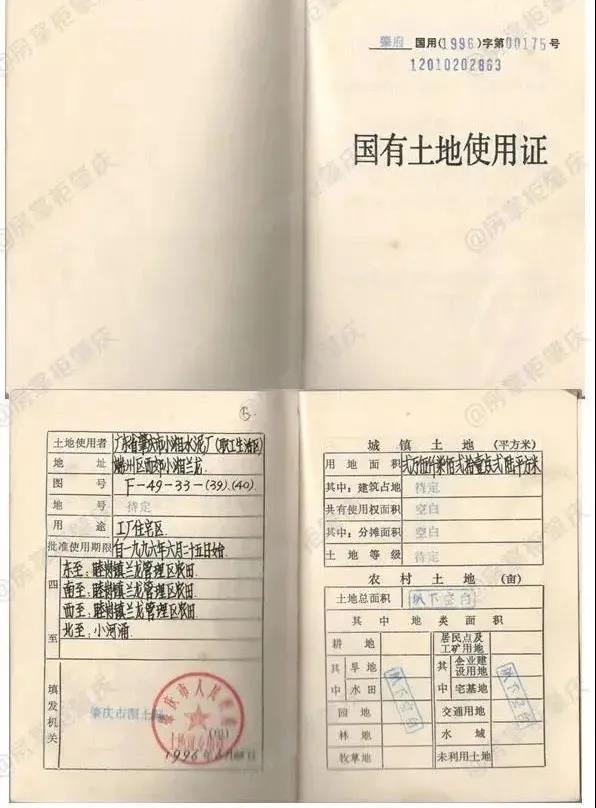 肇府 国用(1996)字第00175号
12010202863
国有土地使用证
土地使用者 广东省肇庆市小湘水泥厂(职工生活区)
地址 端州区西郊小湘兰龙
图号 F-49-33-(39)、(40)
地号 待定
用途 工厂住宅区
批准使用期限 自一九九六年六月二十五日始
四至
东至:睦岗镇兰龙管理区农田
南至:睦岗镇兰龙管理区农田
西至:睦岗镇兰龙管理区农田
北至:小河涌
填发机关
肇庆市国土局
(印)
肇庆市人民
1996年6月
城镇土地 (平方米)
用地面积
其中:建筑占地 待定
共有使用权面积 空白
其中:分摊面积 空白
土地等级 待定
农村土地 (亩)
土地总面积 以下空白
其中地类面积
耕地 居民点及工矿用地
其中 旱地 其中 企业建设用地
水田 宅基地
以下空白 以下空白
园地 交通用地
林地 水域
牧草地 未利用土地
@房掌柜肇庆